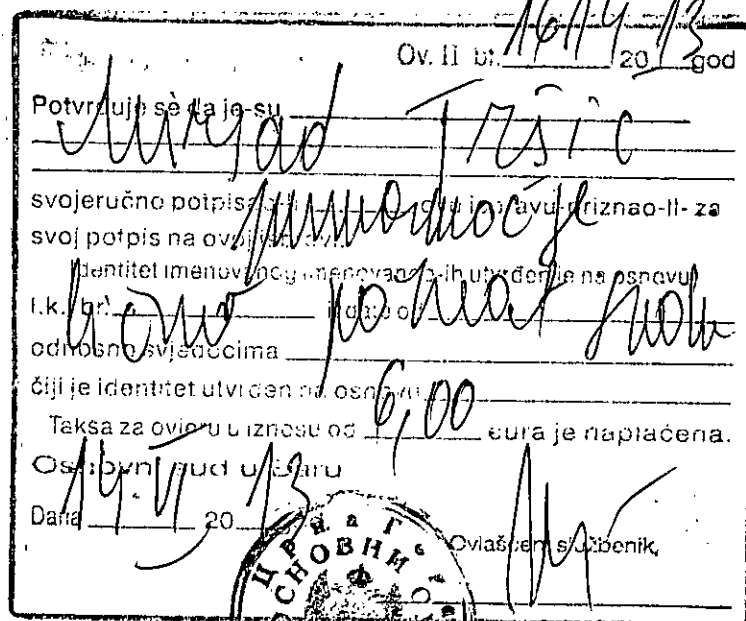 Ov. II br. 1614 2013 god
Potvrđuje se da je-su
Mirjad Tršić
svojeručno potpisao-li punomoćje priznao-li- za
svoj potpis na ovoj
identitet imenovanog-imenovane-ih utvrđen je na osnovu
l.k. br. izdate od
lično poznat sudu
odnosno svjedocima
čiji je identitet utvrđen na osnovu
Taksa za ovjeru u iznosu od 6,00 eura je naplaćena.
Osnovni sud u Baru
Dana 14. VI 2013
Ovlašćeni službenik,
Црна Г
ОСНОВНИ